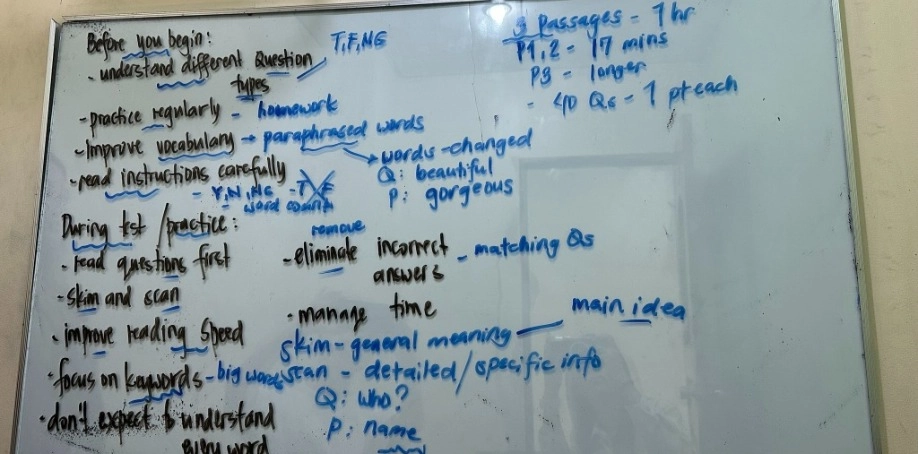 Before you begin:
- understand different Question types
T, F, NG
- practice regularly - homework
- Improve vocabulary → paraphrased words
→ words-changed
Q: beautiful
P: gorgeous
- read instructions carefully
- Y, N, NG - T F
- word count
During test/practice:
- read questions first
- Skim and scan
- improve reading Speed
- focus on keywords - big words
- don't expect to understand
every word
remove
- eliminate incorrect
answers - matching Qs
- manage time
skim - general meaning — main idea
scan - detailed/specific info
Q: Who?
P: name
3 passages = 1 hr
P1, 2 - 17 mins
P3 - longer
- 40 Qs - 1 pt each